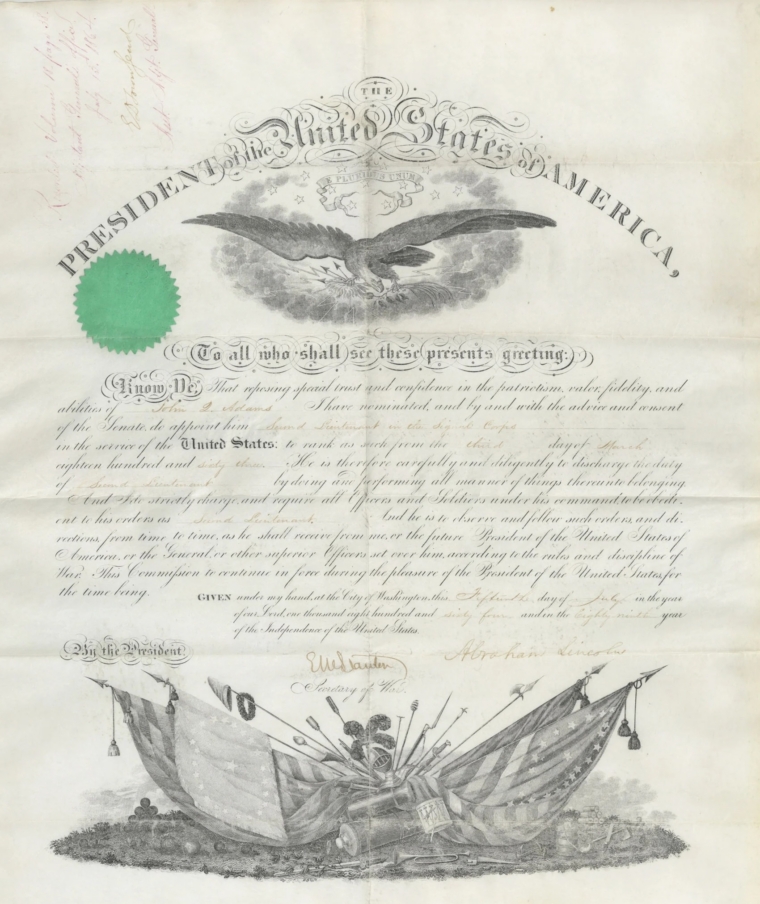 THE
PRESIDENT of the United States of AMERICA,
E PLURIBUS UNUM
To all who shall see these presents greeting:
Know Ye, That reposing special trust and confidence in the patriotism, valor, fidelity, and
abilities of John Q. Adams I have nominated, and by and with the advice and consent
of the Senate, do appoint him Second Lieutenant in the Signal Corps
in the service of the United States: to rank as such from the third day of March
eighteen hundred and sixty three. He is therefore carefully and diligently to discharge the duty
of Second Lieutenant by doing and performing all manner of things thereunto belonging
And I do strictly charge, and require all Officers and Soldiers under his command, to be obedi-
ent to his orders as Second Lieutenant. And he is to observe and follow such orders, and di-
rections, from time to time, as he shall receive from me, or the future President of the United States of
America, or the General, or other superior Officers set over him, according to the rules and discipline of
War. This Commission to continue in force during the pleasure of the President of the United States, for
the time being.
GIVEN under my hand, at the City of Washington, this Fifteenth day of July in the year
of our Lord, one thousand eight hundred and sixty four and in the Eighty ninth year
of the Independence of the United States.
By the President
Abraham Lincoln
Edwin M Stanton
Secretary of War.
E D Townsend
Asst. Adjt. General